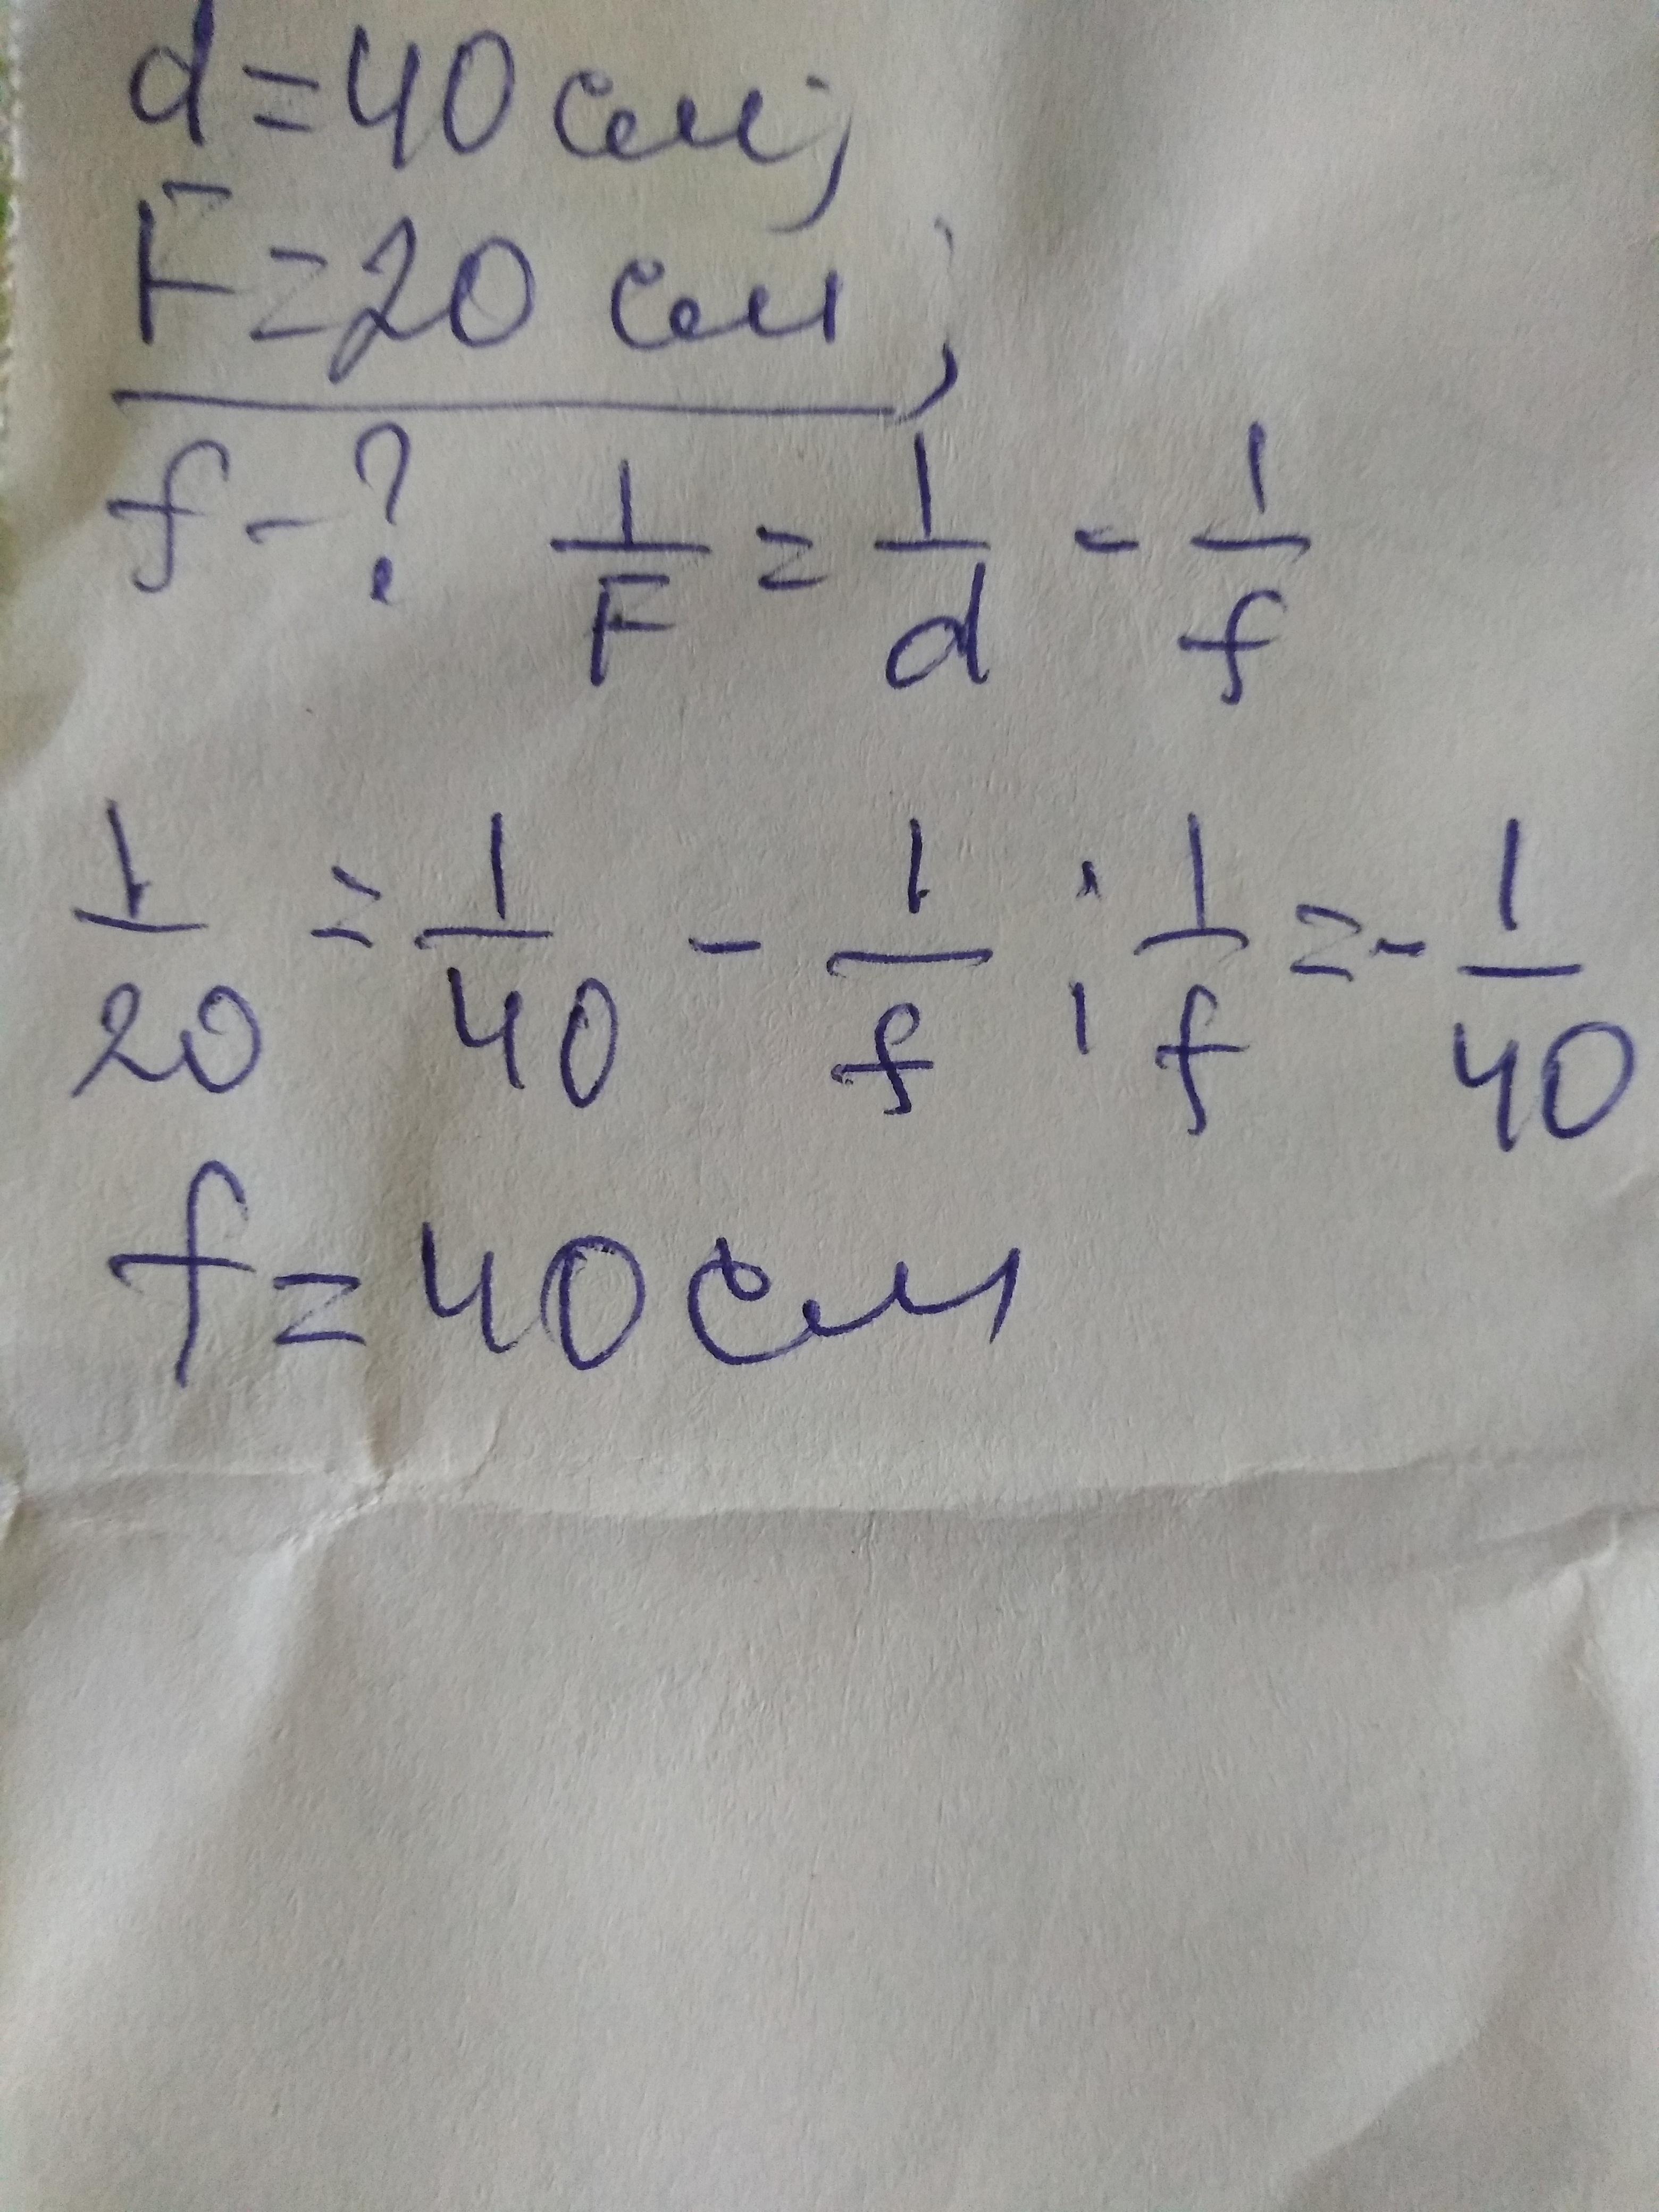 d = 40 см;
F = 20 см;
f - ? 1/F = 1/d - 1/f
1/20 = 1/40 - 1/f ; 1/f = - 1/40
f = 40 см